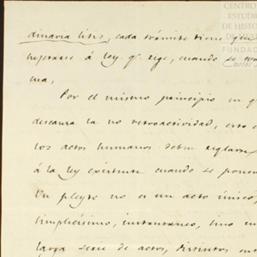 CENTRO
ESTUDI
DE HISTO
D
FUNDA
Carlos
dinaria litis, cada trámite tiene que
sugetarse á ley q.e rige, cuando se
ma,
Por el mismo principio en q
descansa la no retroactividad, esto
los actos humanos deben reglarse
á la ley existente cuando se ponen
Un pleyto no es un acto único,
simplicísimo, instantáneo, sino un
larga serie de actos, distintos ent